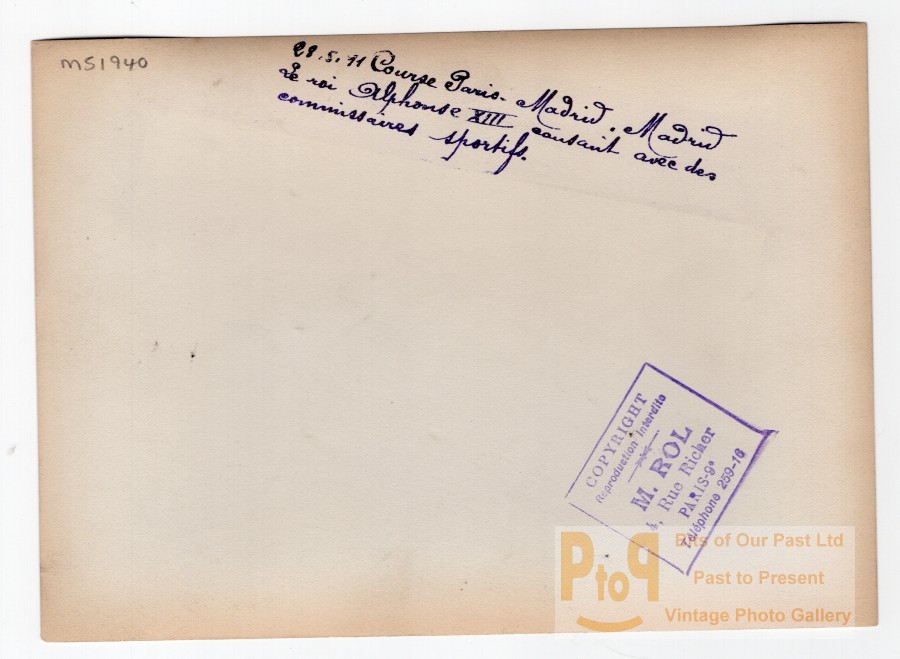 ms1940
28.5.11 Course Paris-Madrid. Madrid
Le roi Alphonse XIII causant avec des
commissaires sportifs.
COPYRIGHT
Reproduction Interdite
M. ROL
4, Rue Richer
PARIS-9e
Téléphone 259-16
PtoP
Bits of Our Past Ltd
Past to Present
Vintage Photo Gallery